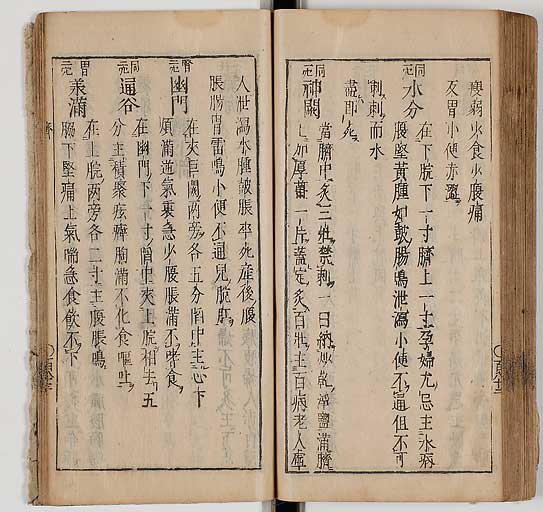 瘦弱少食少腹痛
及胃小便赤澀
同
元
水分
在下脘下一寸臍上一寸孕婦尤忌主水病
腹堅黃腫如鼓腸鳴泄瀉小便不通但不可
刺刺而水
盡即死
同
元
神闕
當臍中灸三壯禁刺一曰納炒乾淨鹽滿臍
上加厚薑一片蓋定灸百壯主百病老人虛
人泄瀉水腫鼓脹卒死產後腹
脹腸胃雷鳴小便不通兒脫肛
腎
元
幽門
在夾巨闕兩旁各五分陷中主心下
煩滿逆氣裏急少腹脹滿不嗜食
同
元
通谷
在幽門下一寸陷中夾上脘相去五
分主積聚痃癖胸滿不化食嘔吐
胃
元
承滿
在上脘兩旁各二寸主腹脹鳴
腸下堅痛上氣喘急食飲不下